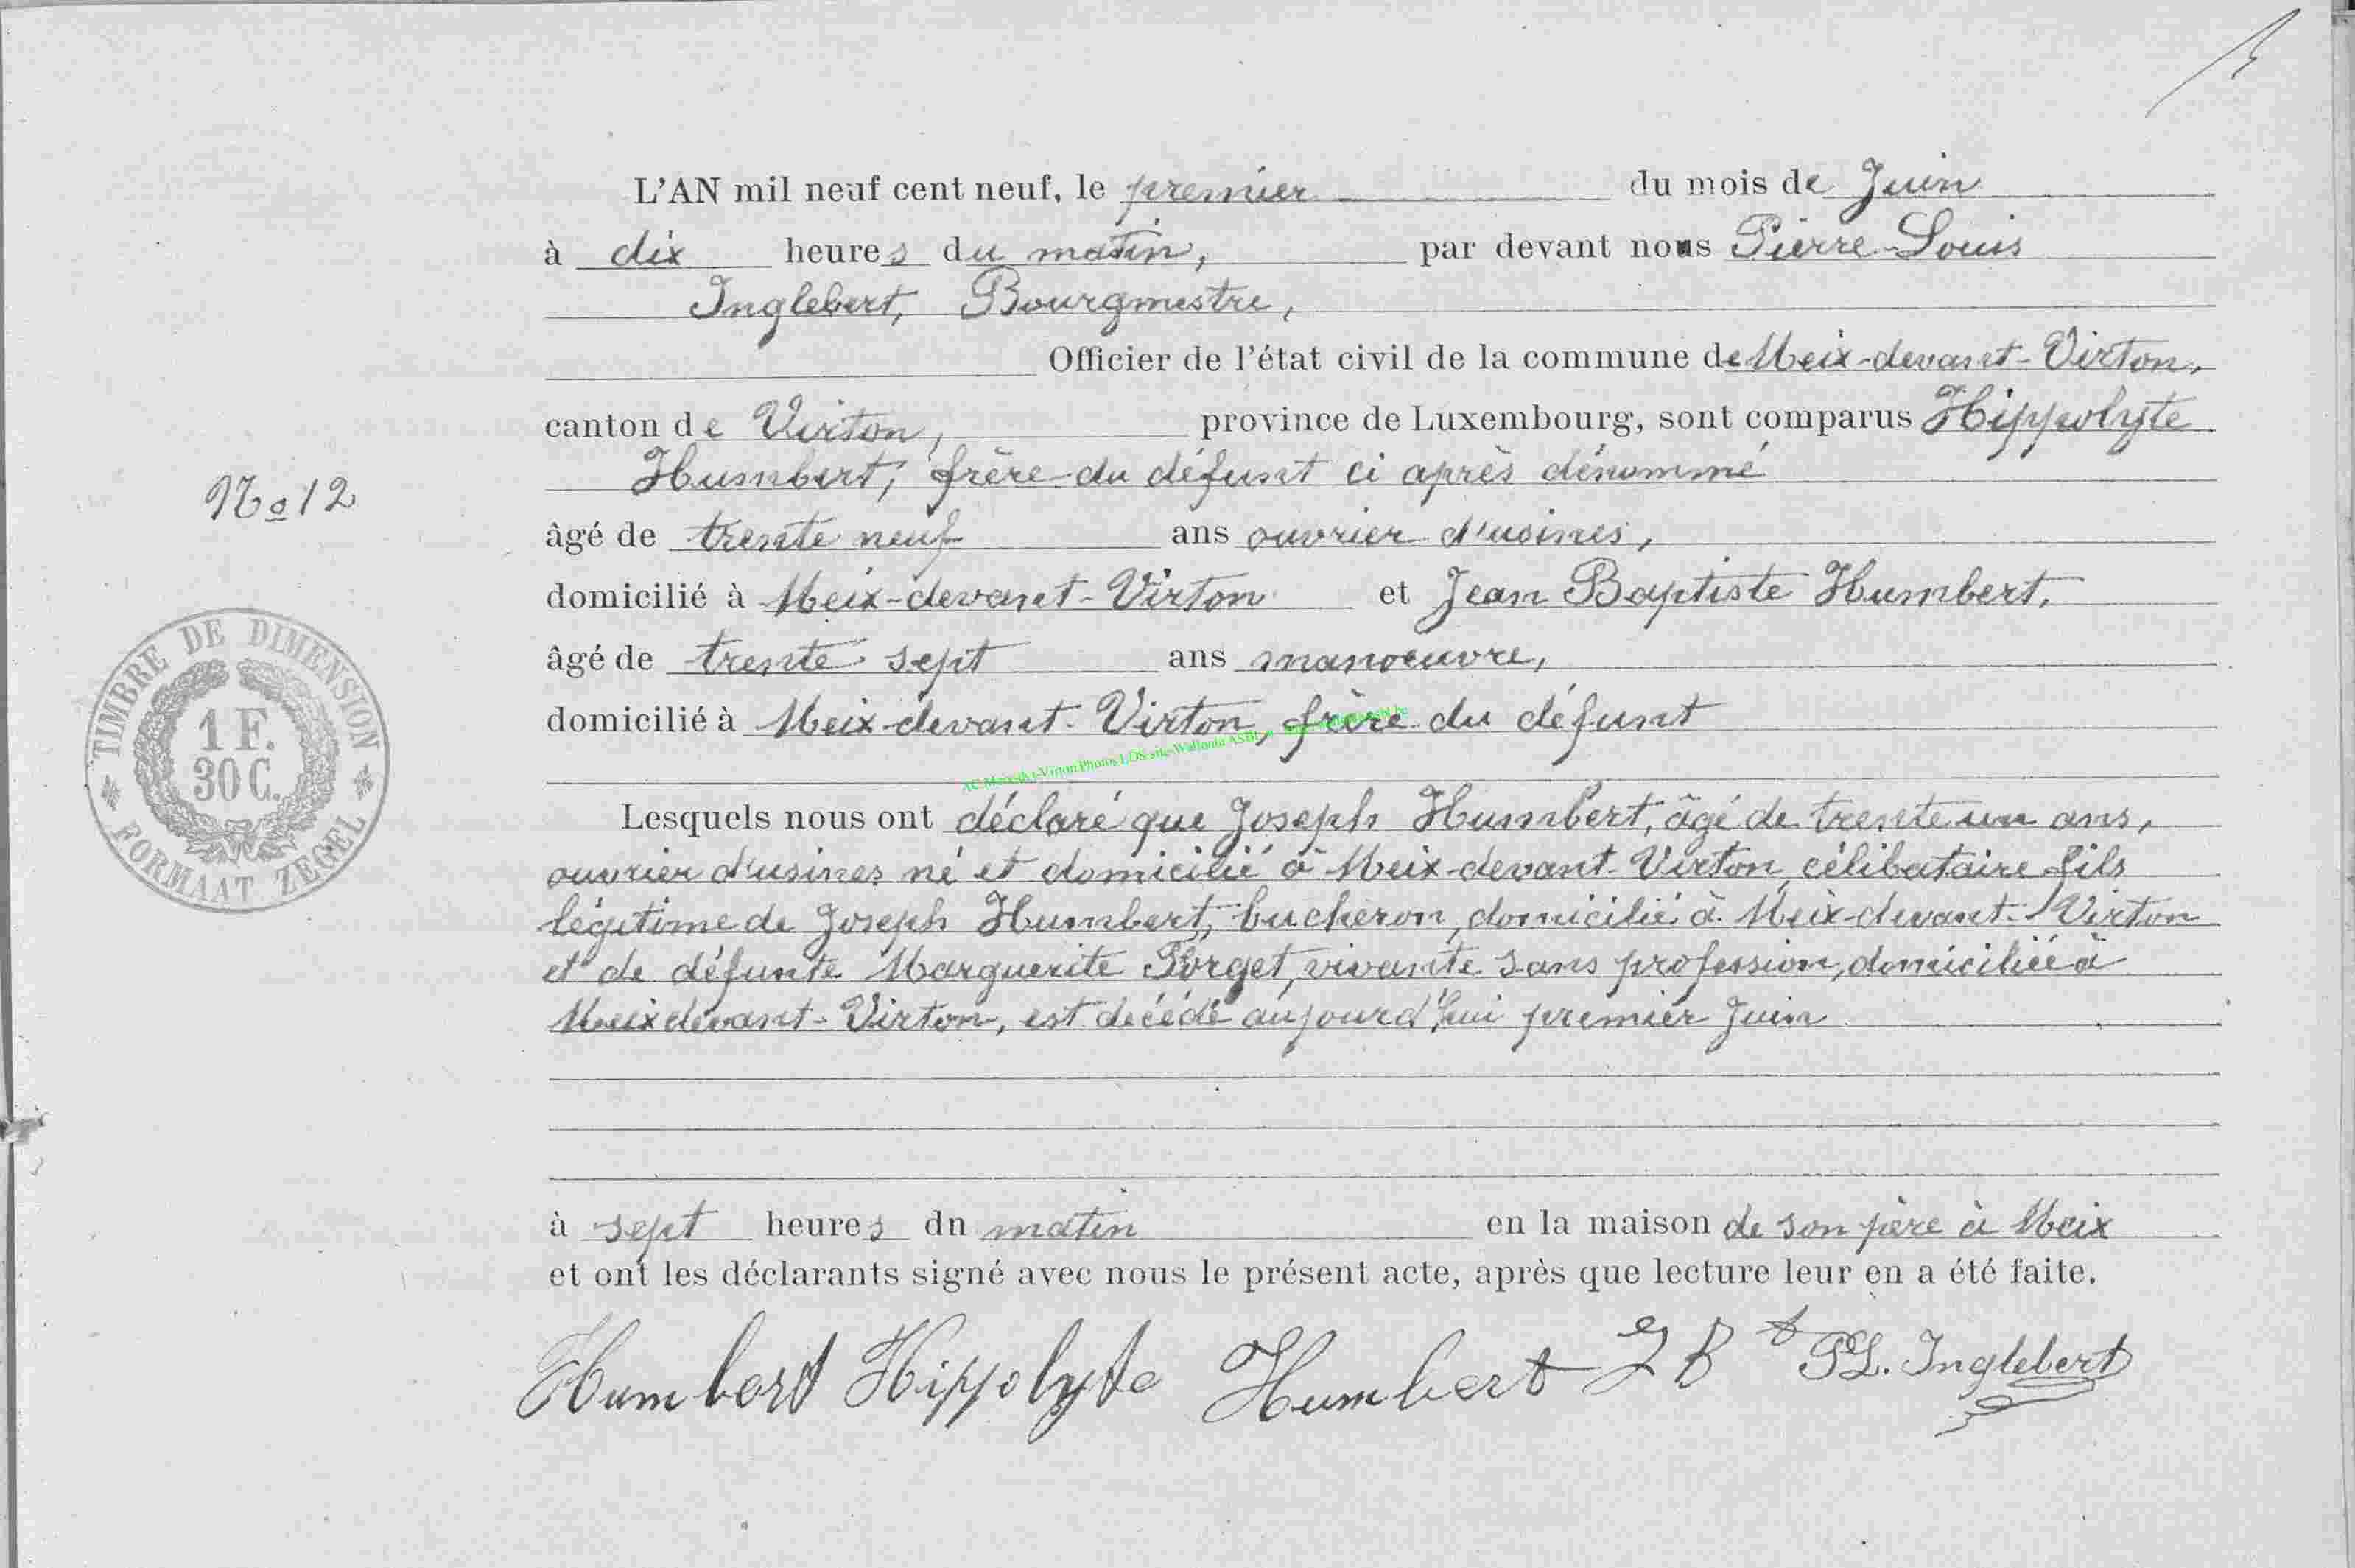 L'AN mil neuf cent neuf, le premier du mois de Juin
à dix heures du matin, par devant nous Pierre-Louis
Inglebert, Bourgmestre,
Officier de l'état civil de la commune de Meix-devant-Virton,
canton de Virton, province de Luxembourg, sont comparus Hippolyte
Humbert, frère du défunt ci après dénommé
No 12
âgé de trente neuf ans ouvrier d'usines,
domicilié à Meix-devant-Virton et Jean Baptiste Humbert,
âgé de trente sept ans manoeuvre,
domicilié à Meix-devant-Virton, frère du défunt
TIMBRE DE DIMENSION
1 F.
30 C.
FORMAAT ZEGEL
Lesquels nous ont déclaré que Joseph Humbert, âgé de trente un ans,
ouvrier d'usines né et domicilié à Meix-devant-Virton, célibataire fils
légitime de Joseph Humbert, bucheron, domicilié à Meix-devant-Virton
et de défunte Marguerite Forget, vivante sans profession, domiciliée à
Meix devant-Virton, est décédé aujourd'hui premier Juin
à sept heures dn matin en la maison de son père à Meix
et ont les déclarants signé avec nous le présent acte, après que lecture leur en a été faite.
Humbert Hippolyte Humbert J Bt PL. Inglebert